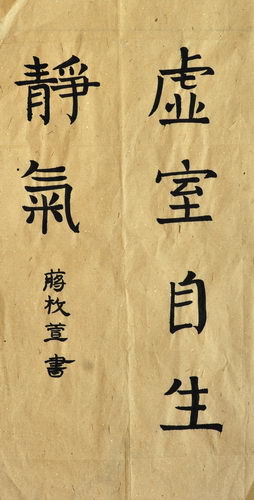 虛室自生
靜氣
蔣枚萱書